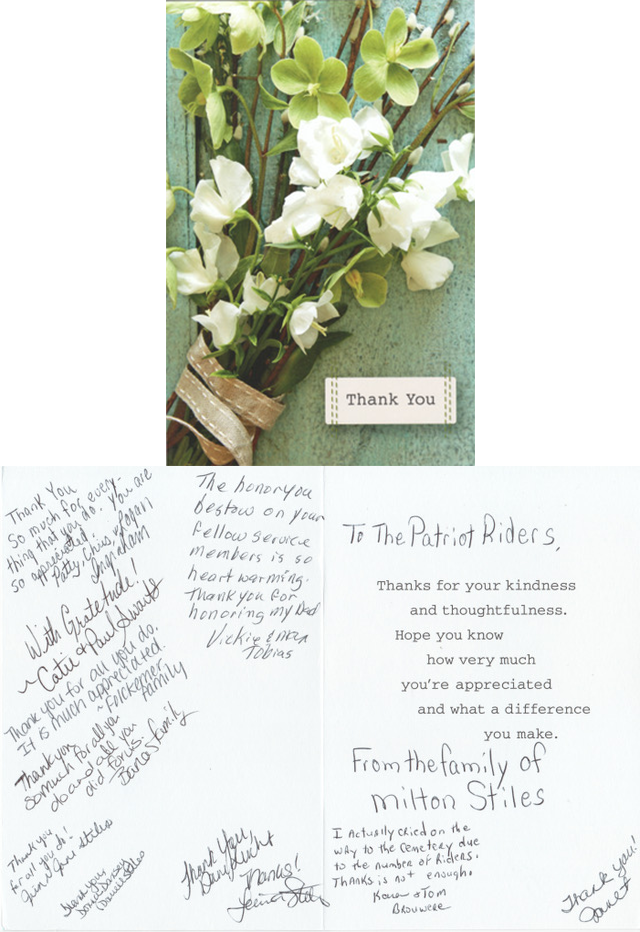 Thank You
Thank You
so much for every-
thing that you do. You are
so appreciated.
Patty, Chris, Logan
Ingraham
With Gratitude!
~ Catie & Paul Swartz
Thank you for all you do.
It is much appreciated.
~ Folckemer
family
Thank you
so much for all you
do and all you
did for us.
Family
Thank you
for all you do!
Stiles
Thank you
The honor you
bestow on your
fellow service
members is so
heart warming.
Thank you for
honoring my Dad
Vickie &
Tobias
Thank You
Thanks!
To The Patriot Riders,
Thanks for your kindness
and thoughtfulness.
Hope you know
how very much
you're appreciated
and what a difference
you make.
From the family of
Milton Stiles
I Actually cried on the
way to the Cemetery due
to the number of Riders.
Thanks is not enough.
& Tom
Brouwere
Thank you!
Janet